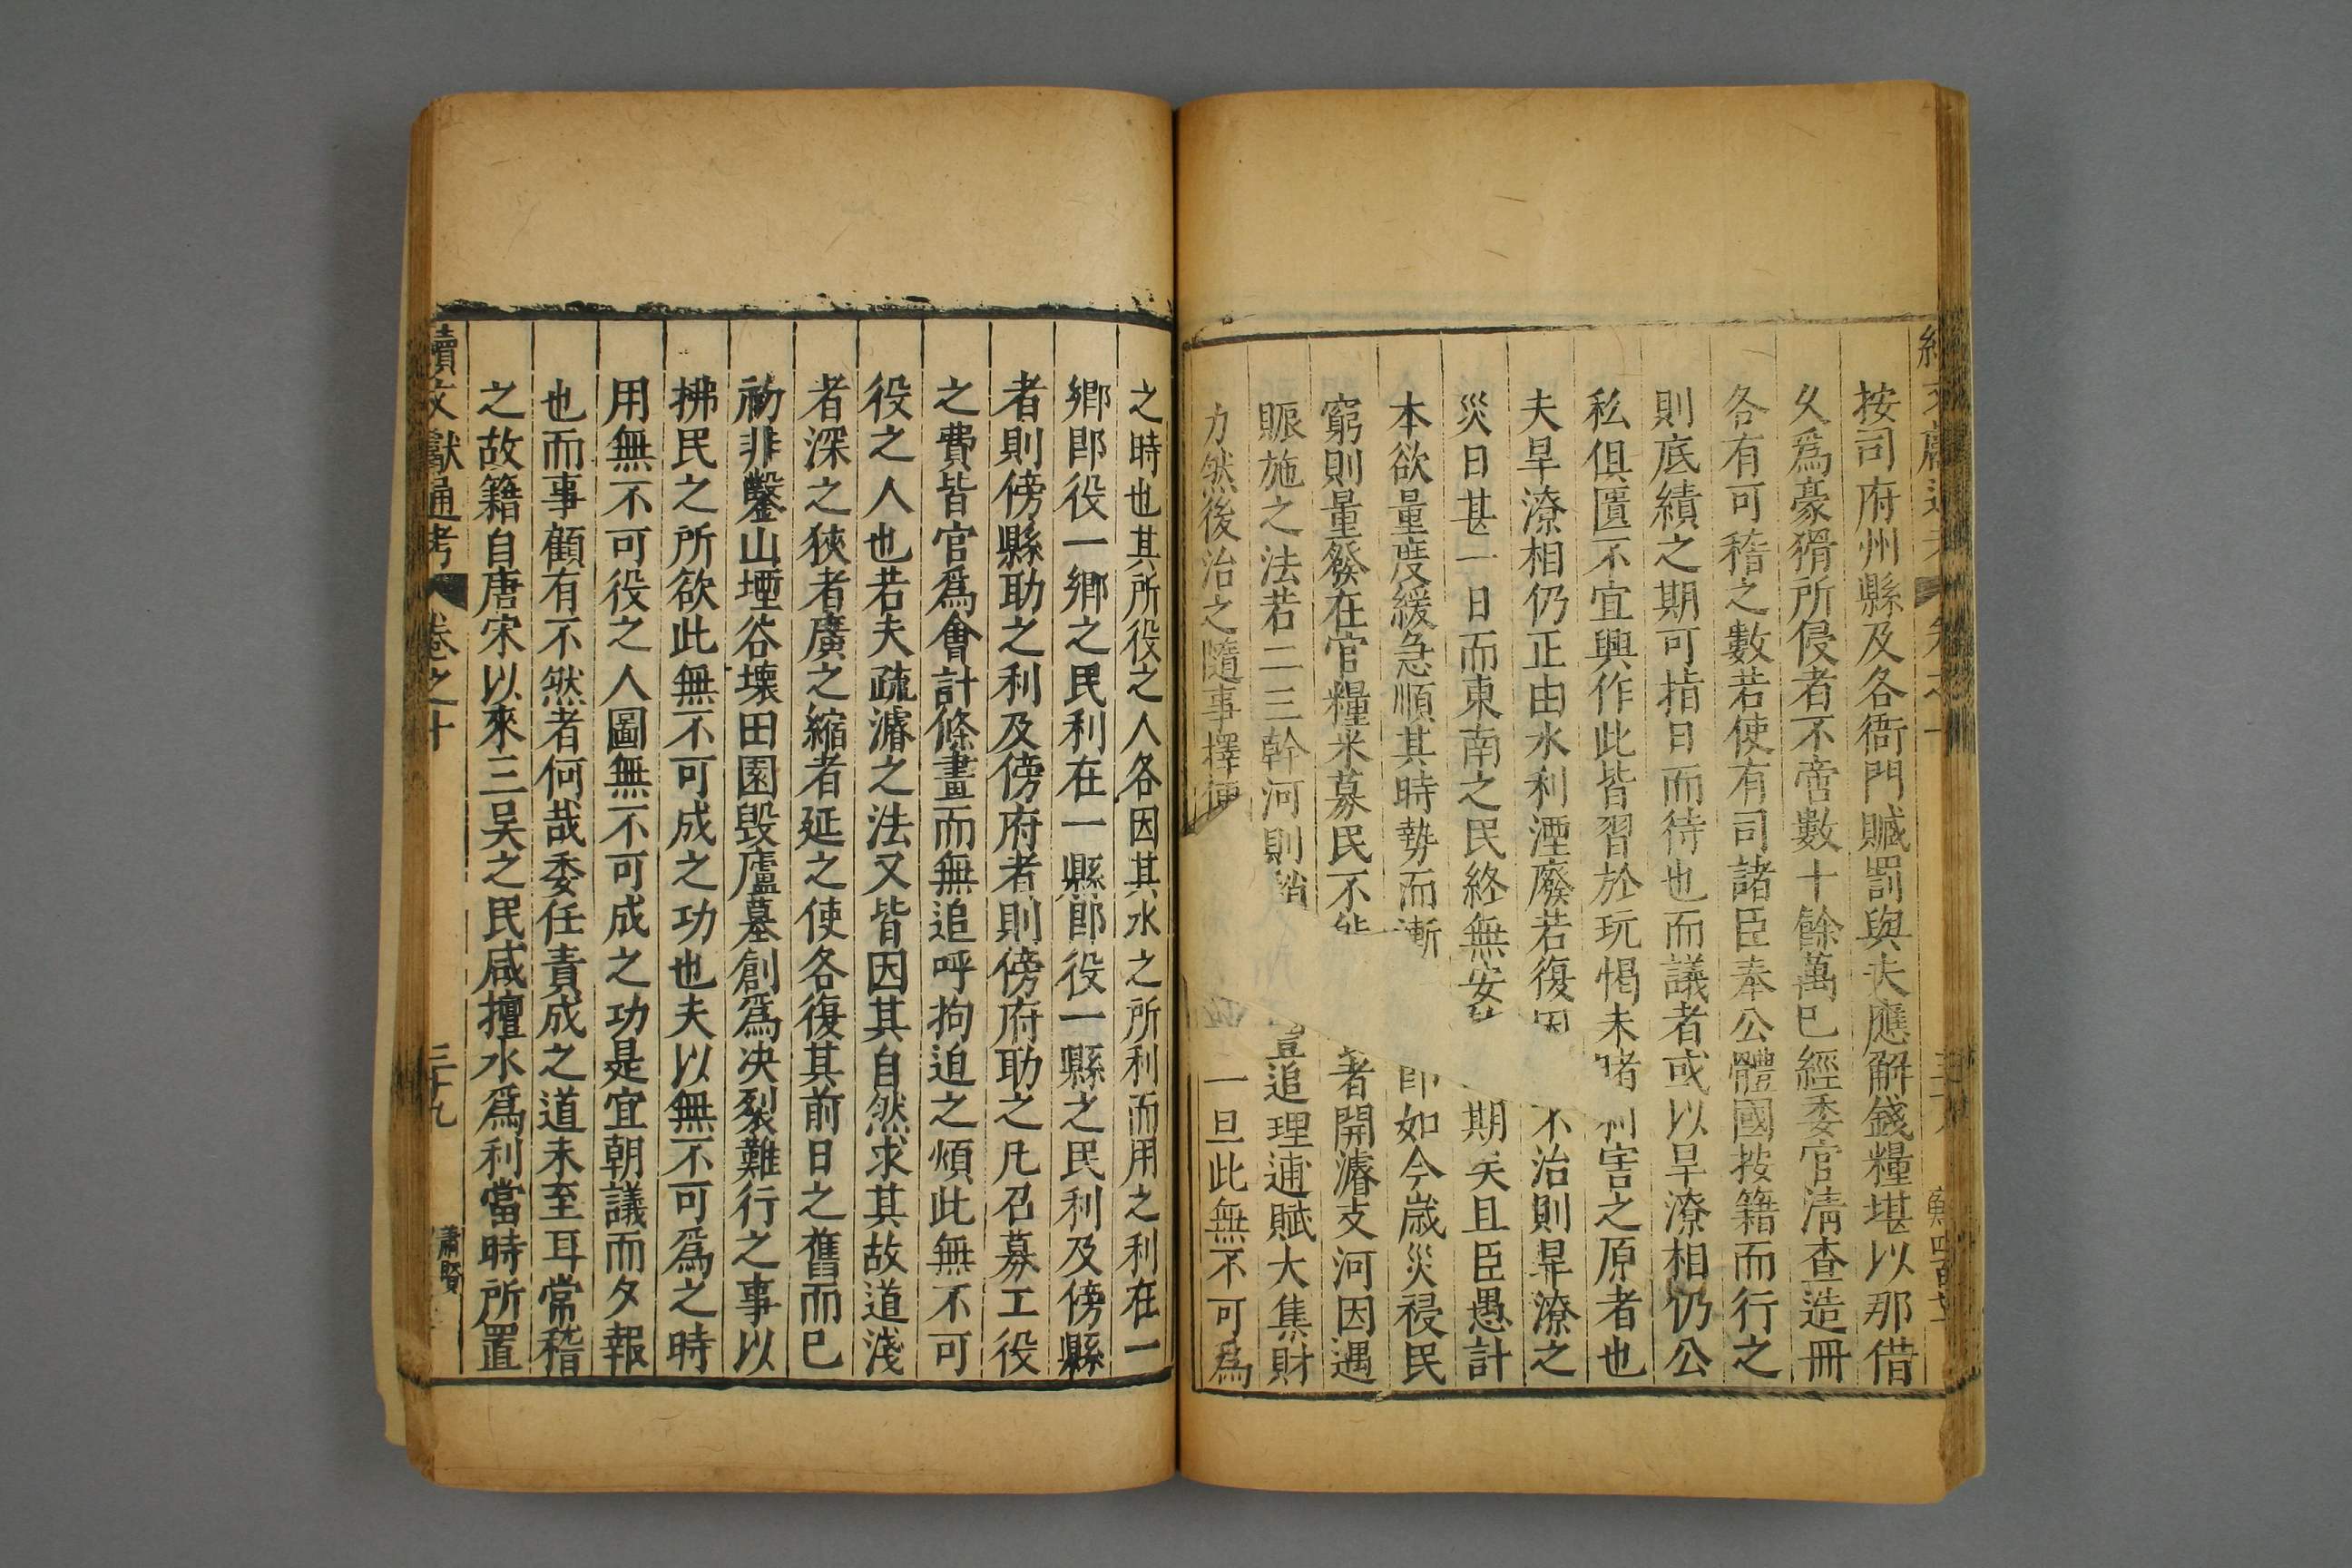 按司府州縣及各衙門贓罰與夫應解錢糧堪以那借
久爲豪猾所侵者不啻數十餘萬已經委官淸查造冊
各有可稽之數若使有司諸臣奉公體國按籍而行之
則底績之期可指日而待也而議者或以旱潦相仍公
私俱匱不宜興作此皆習於玩愒未睹利害之原者也
夫旱潦相仍正由水利湮廢若復因不治則旱潦之
災日甚一日而東南之民終無安期矣且臣愚計
本欲量度緩急順其時勢而漸卽如今歲災祲民
窮則量發在官糧米募民不能著開濬支河因遇
賑施之法若二三幹河則豈追理逋賦大集財
力然後治之隨事擇便一旦此無不可爲
之時也其所役之人各因其水之所利而用之利在一
鄉郎役一鄉之民利在一縣郎役一縣之民利及傍縣
者則傍縣助之利及傍府者則傍府助之凡召募工役
之費皆官爲會計條畫而無追呼拘迫之煩此無不可
役之人也若夫疏濬之法又皆因其自然求其故道淺
者深之狹者廣之縮者延之使各復其前日之舊而已
初非鑿山堙谷壞田園毀廬墓創爲决裂難行之事以
拂民之所欲此無不可成之功也夫以無不可爲之時
用無不可役之人圖無不可成之功是宜朝議而夕報
也而事顧有不然者何哉委任責成之道未至耳常稽
之故籍自唐宋以來三吴之民咸擅水爲利當時所置
續文獻通考 卷之十 三十九 蕭賢